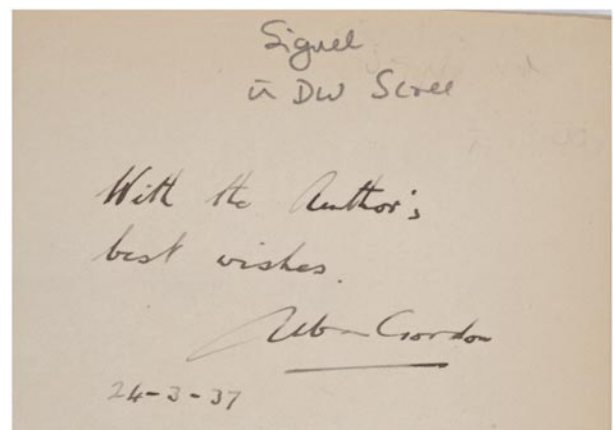 Signed
in DW
With the Author's
best wishes.
Alban Gordon
24-3-37